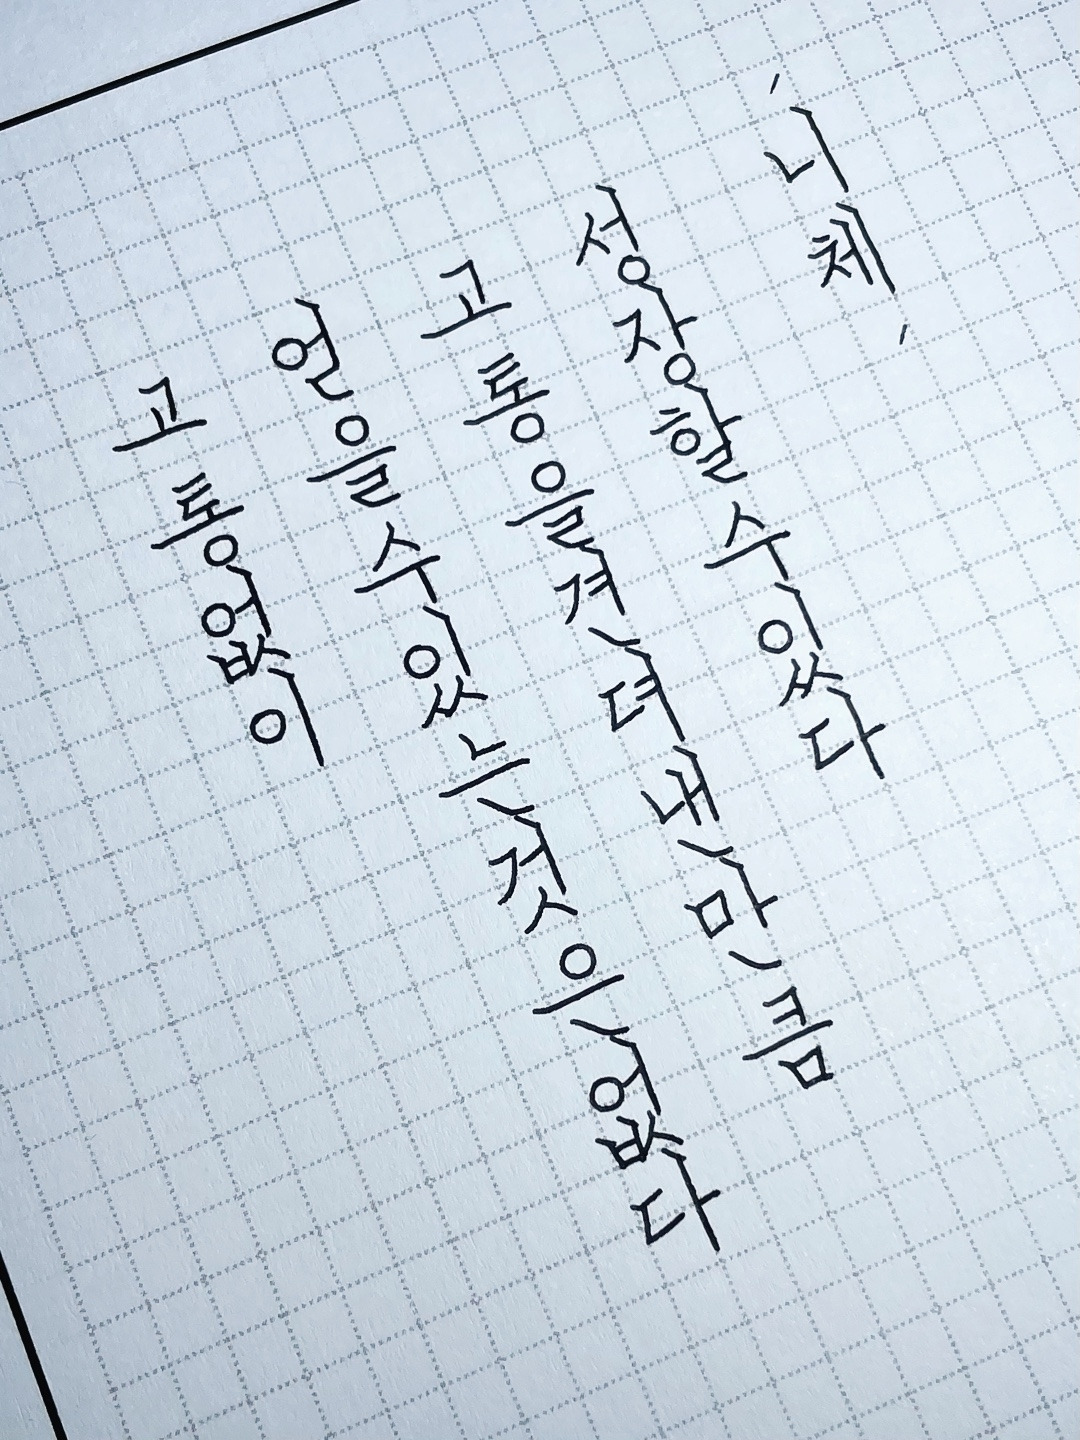 고통없이
얻을수있는것은없다
고통을견뎌낸만큼
성장할수있다
'니체'